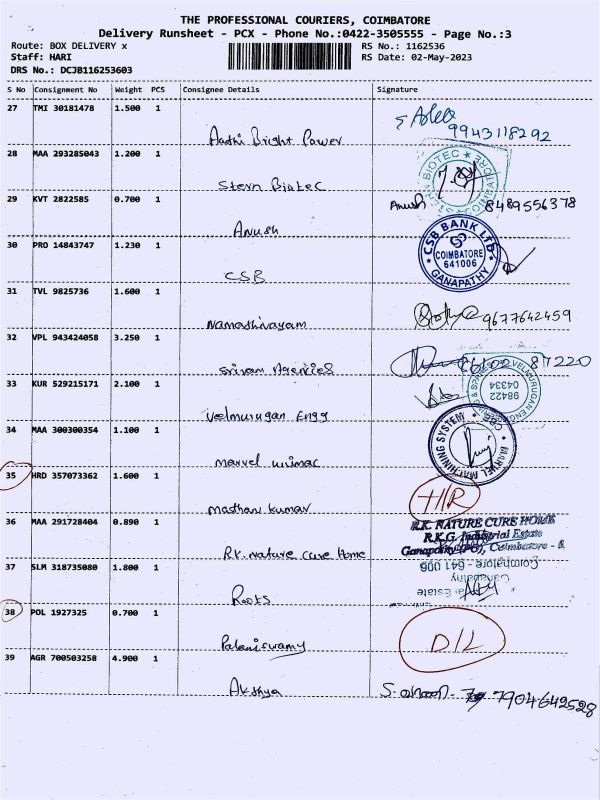 THE PROFESSIONAL COURIERS, COIMBATORE
Delivery Runsheet - PCX - Phone No.:0422-3505555 - Page No.:3
Route: BOX DELIVERY x RS No.: 1162536
Staff: HARI RS Date: 02-May-2023
DRS No.: DCJB116253603
S No Consignment No Weight PCS Consignee Details Signature
27 TMI 30181478 1.500 1
Aadhi Bright Power 9943118292
28 MAA 293285043 1.200 1
Stern Biotec
29 KVT 2822585 0.700 1 Anush 8489556378
Anush
30 PRO 14843747 1.230 1 CSB BANK LTD COIMBATORE 641006 GANAPATHY
CSB
31 TVL 9825736 1.600 1
Namashivayam 9677642459
32 VPL 943424058 3.250 1
Sriram Agencies 87220
33 KUR 529215171 2.100 1 98422 04334
Velmurugan Engg
34 MAA 300300354 1.100 1 MARVEL MACHINING SYSTEM
Marvel unimac
35 HRD 357073362 1.600 1
Masthan Kumar
36 MAA 291728404 0.890 1 R.K. NATURE CURE HOME
R.K.G. Industrial Estate
Ganapathy (PO), Coimbatore - 6
R.K. nature cure Home
37 SLM 318735080 1.800 1 Coimbatore - 641 006
Ganapathy
Roots
38 POL 1927325 0.700 1
Palaniswamy D/L
39 AGR 700503258 4.900 1
Akshya 7904642528